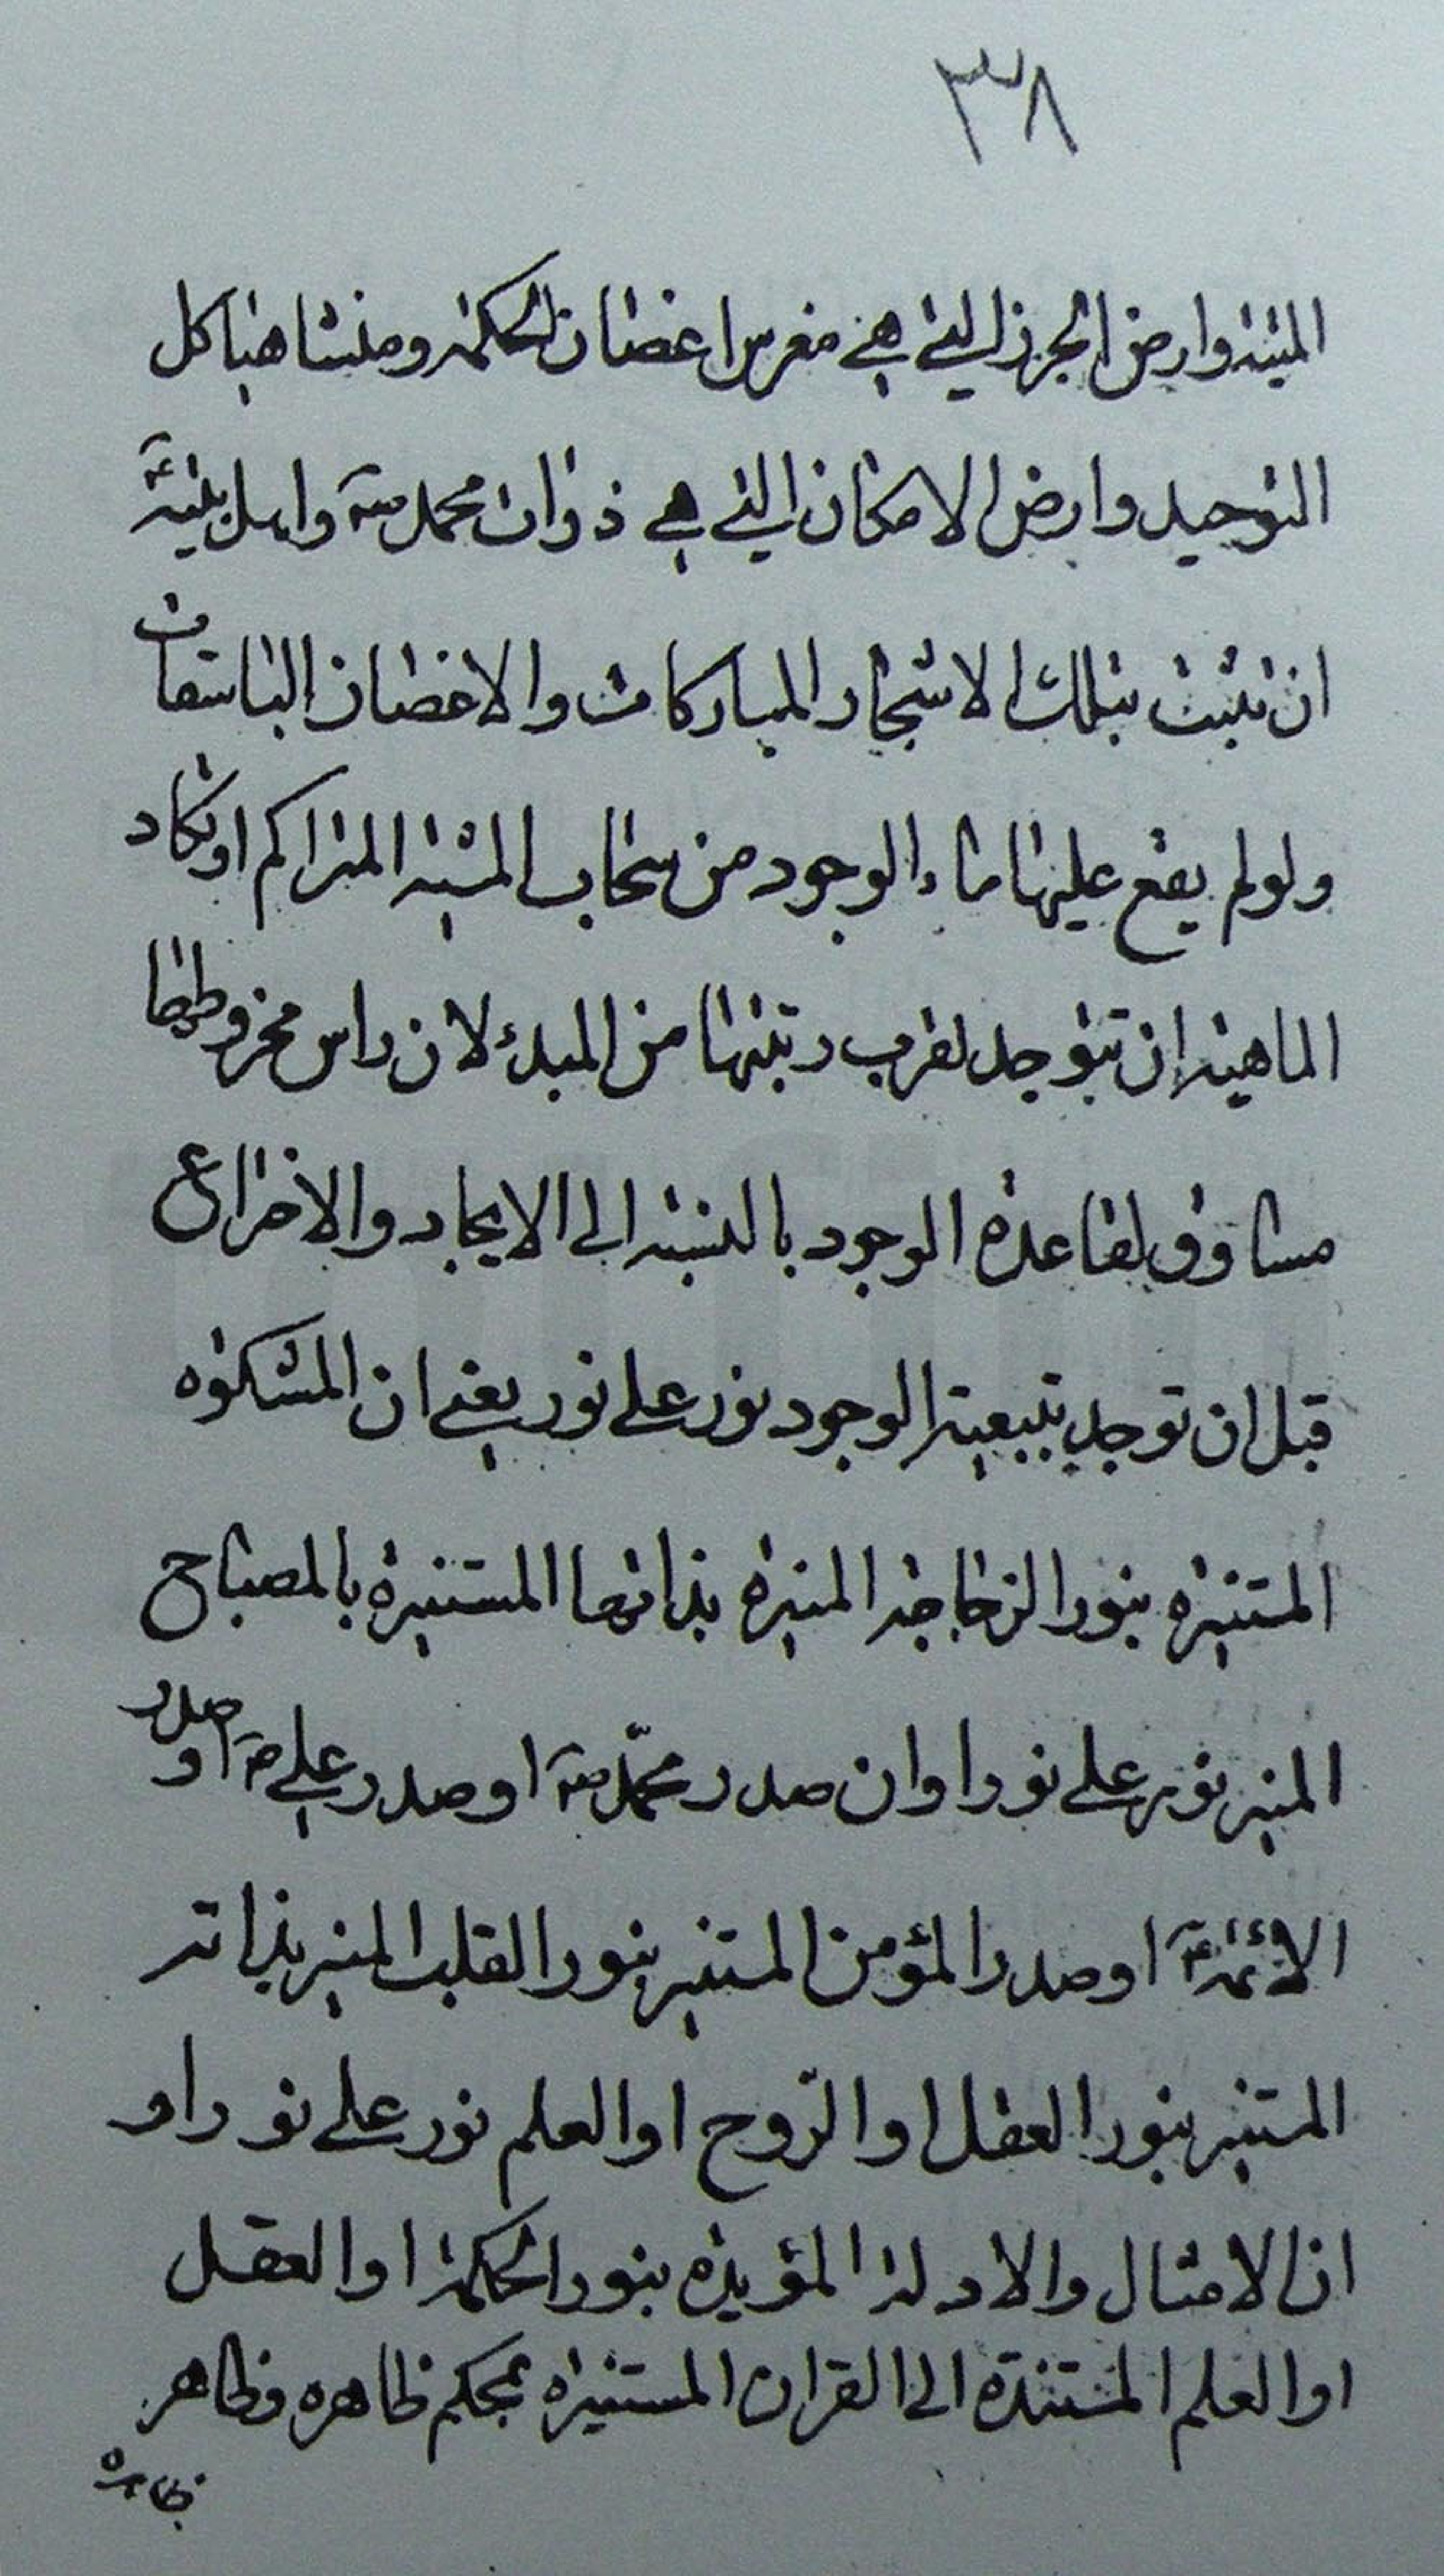 ٣٨
الميتة وارض الجرز التي هي مغرس اغصان الحكمة ومنشا هياكل
التوحيد وارض الامكان التي هي ذوات محمد صه واهل بيتة ع
ان تنبت بتلك الاشجار المباركات والاغصان الباسقات
ولو لم يقع عليها ماء الوجود من سحاب المشية المتراكم او تكاد
الماهية ان توجد لقرب رتبتها من المبدء لان راس مخروطها
مساوق لقاعدة الوجود بالنسبة الى الايجاد والاختراع
قبل ان توجد بتبعية الوجود نور على نور يعني ان المشكوة
المستنيرة بنور الزجاجة المنيرة بذاتها المستنيرة بالمصباح
المنير نور على نور او ان صدر محمّد صه او صدر علي ع او صدر
الائمة ع او صدر المؤمن المستنير بنور القلب المنير بذاته
المستنير بنور العقل او الرّوح او العلم نور على نور او
ان الامثال والادلة المؤيدة بنور الحكمة او العقل
او العلم المستندة الى القران المستنيرة بمحكم ظاهره وظاهر
ظاهره